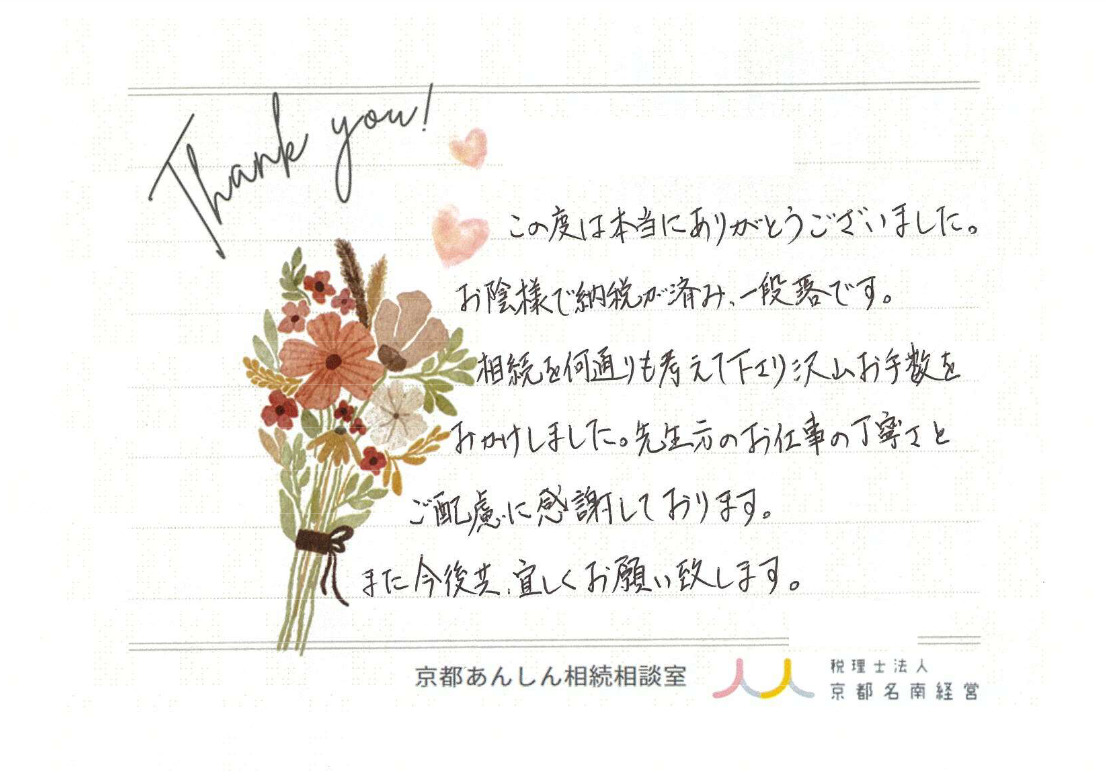 Thank you!
この度は本当にありがとうございました。
お陰様で納税が済み、一段落です。
相続を何通りも考えて下さり沢山お手数を
おかけしました。先生方のお仕事の丁寧さと
ご配慮に感謝しております。
また今後共、宜しくお願い致します。
京都あんしん相続相談室
税理士法人
京都名南経営